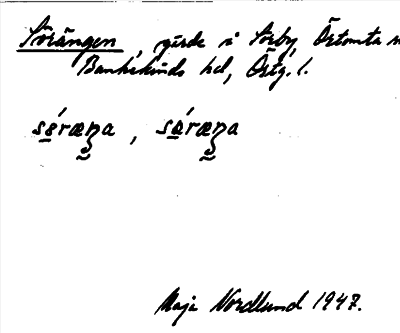 Sörängen, gärde i Sörby, Örtomta
Bankekinds hd, Östg. l.
séræŋa, sáræŋa
Maja Nordlund 1947.